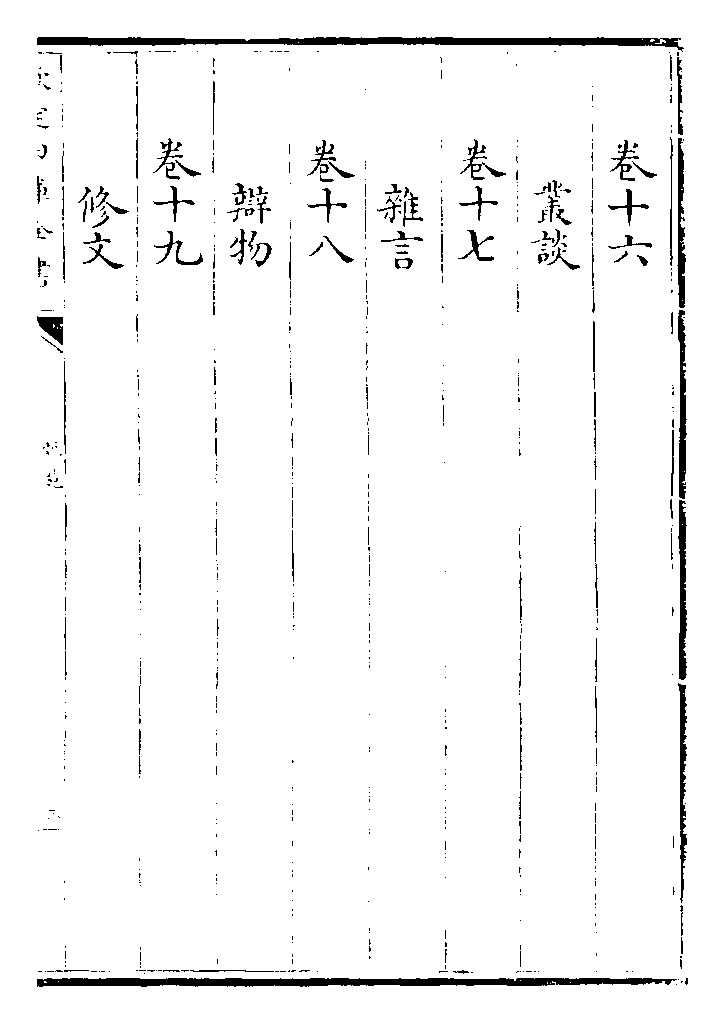 卷十六
叢談
卷十七
雜言
卷十八
辯物
卷十九
脩文
欽定四庫全書
說苑